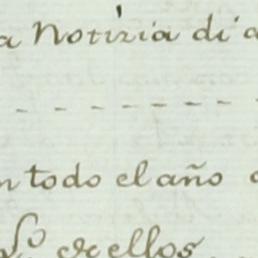 a Notizia di
n todo el año
de ellos